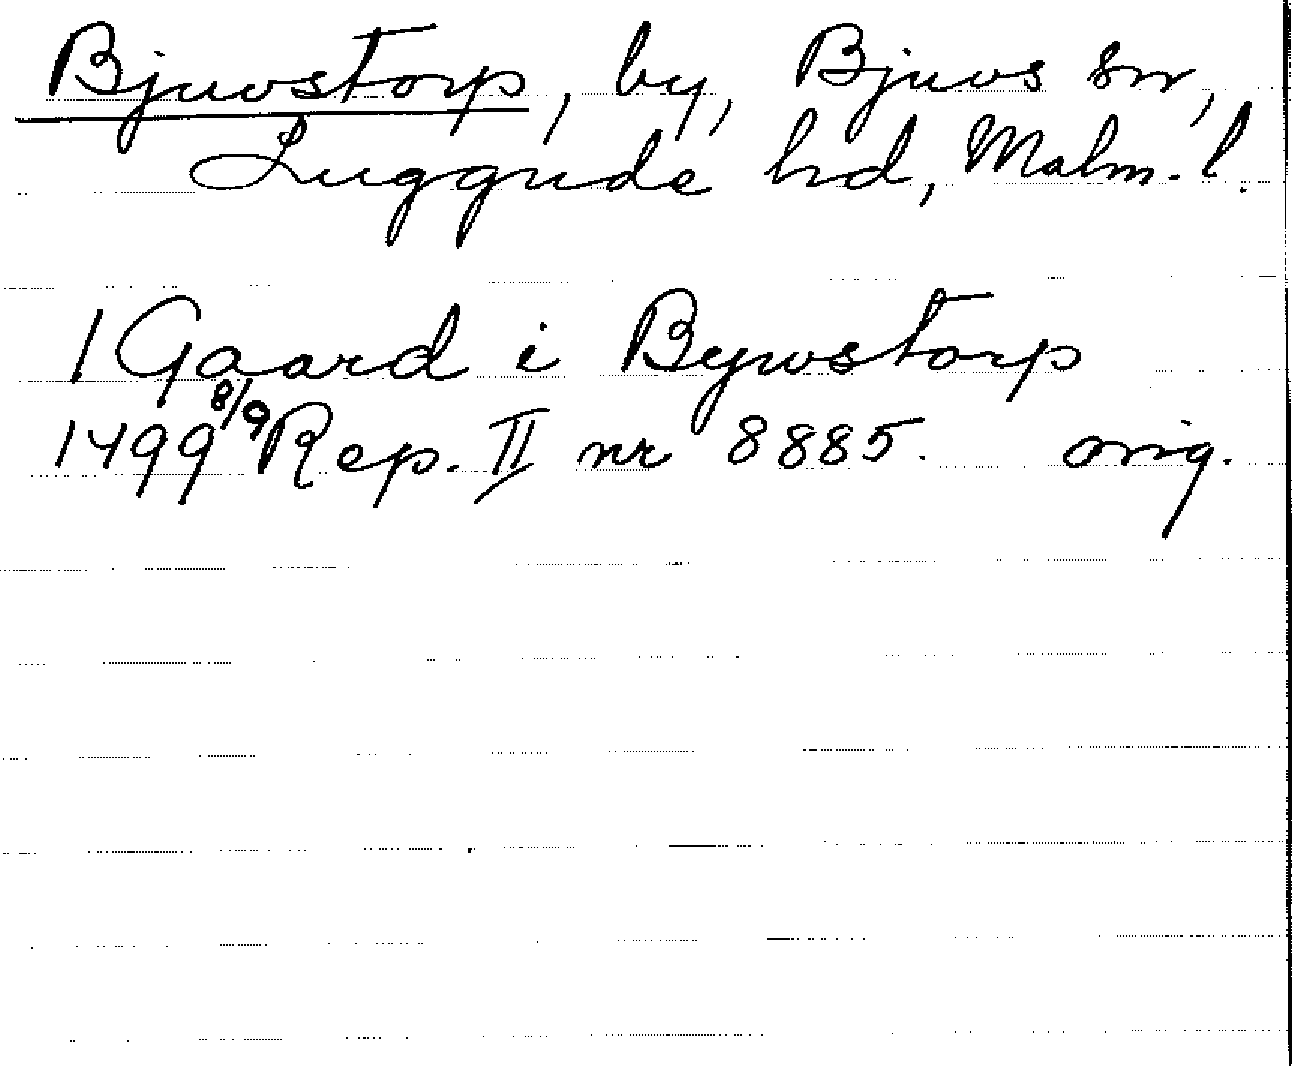 Bjuvstorp, by, Bjuvs sn,
Luggude hd, Malm. l.
1 Gaard i Bywstorp
1499 8/9 Rep. II nr 8885. orig.